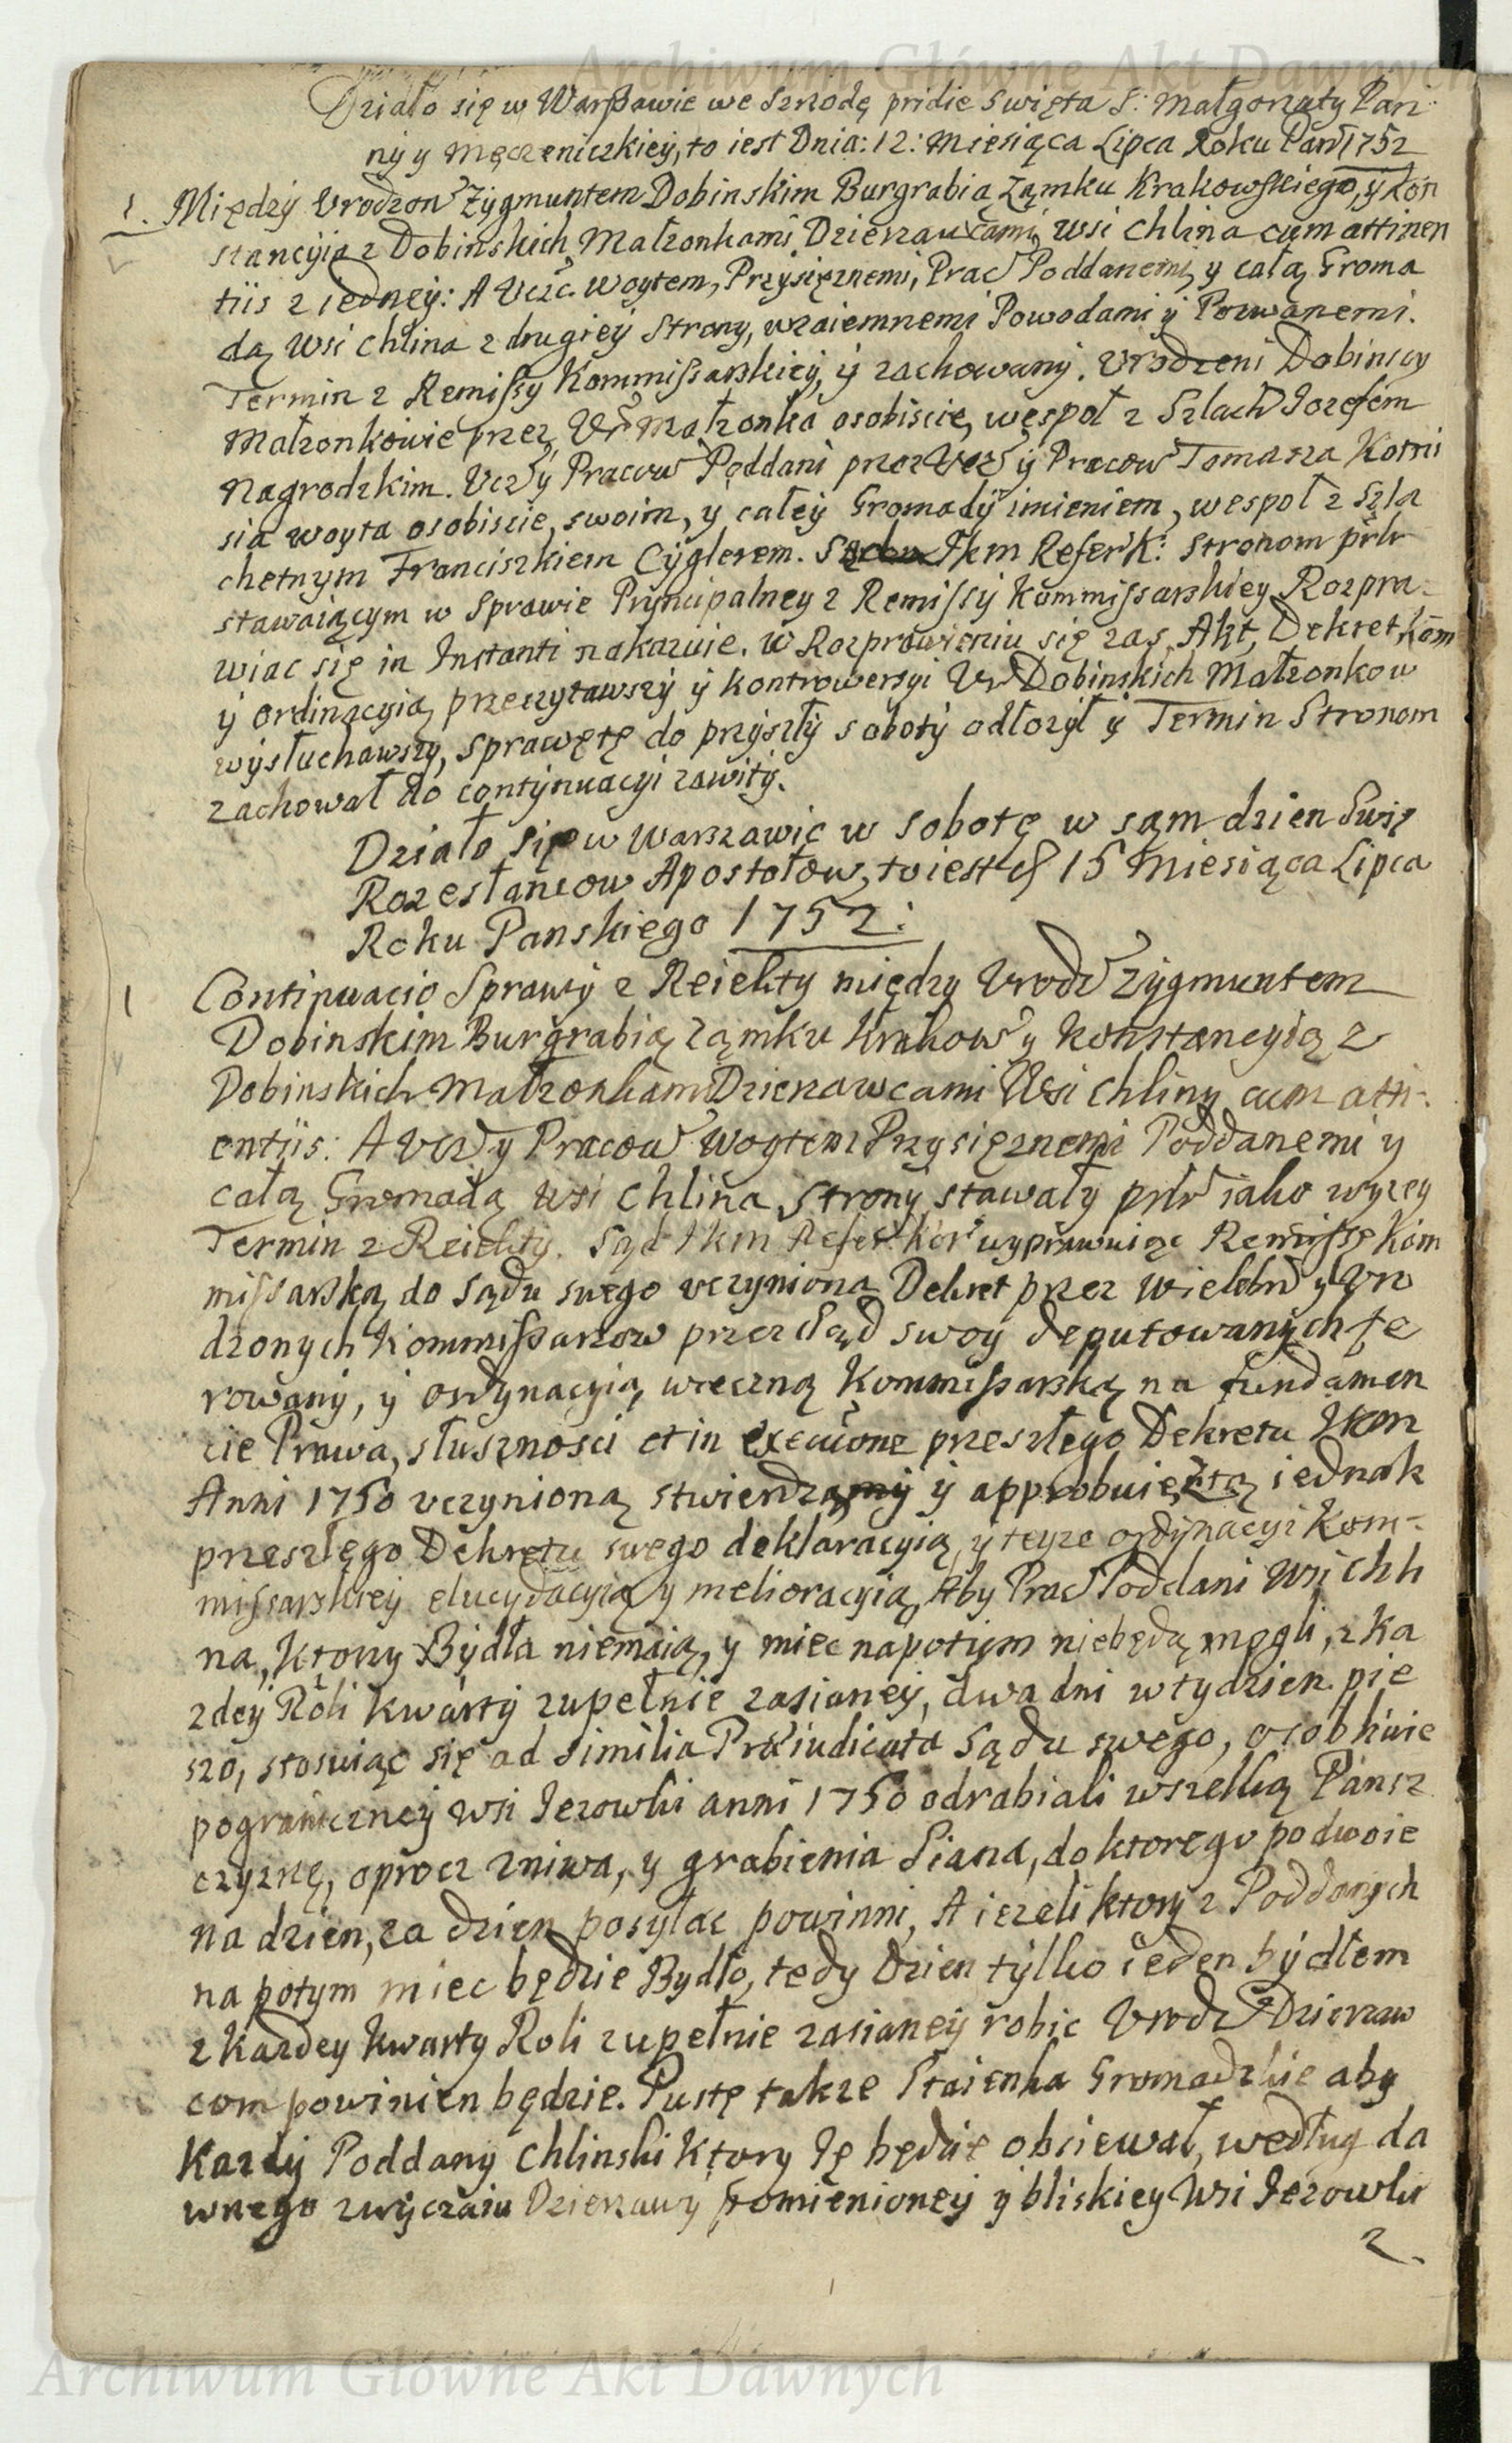 Archiwum Główne Akt Dawnych
Działo się w Warszawie we Srzodę pridie święta S: Małgorzaty Pan
ny y Męczeniczkiey, to iest Dnia: 12: Miesiąca Lipca Roku Pań 1752
1. Między Urodzon Zygmuntem Dobinskim Burgrabią Zamku Krakowskiego, y Kon
stancyią z Dobinskich Małzonkami Dzierzawcami wsi Chlina cum attinen
tiis z iedney: A Ucz. Woytem, Przysięznemi, Prac Poddanemi y całą Groma
dą wsi Chlina z drugiey Strony, wzaiemnemi Powodami y Pozwanemi.
Termin z Remissy Kommissarskiey, y zachowany. Urodzeni Dobinscy
Małzonkowie przez Ur Małzonka osobiscie, wespoł z Szlach Iozefem
Nagrodzkim. Ucz y Pracow Poddani przez Ucz y Pracow Tomasza Kotni
sia woyta osobiscie, swoim, y całey Gromady imieniem, wespoł z Szla
chetnym Franciszkiem Cyglerem. JKM Refer K: Stronom prlr
stawaiącym w Sprawie Pryncipalney z Remissy Kommissarskiey Rozpra
wiac się in Instanti nakazuie. w Rozprawieniu się zas, Akt, Dekret, Kom
y ordinacyią przeczytawszy y kontrowersyi Ur Dobinskich Małzonkow
wysłuchawszy, Sprawę tę do przyszły soboty odłozył y Termin Stronom
zachował do continuacyi zawity.
Działo się w Warszawie w Sobotę w sąm dzien Swię
Rozesłancow Apostołow, to iest d 15 Miesiąca Lipca
Roku Panskiego 1752:
1 Continuacio Sprawy z Reiekty między Urodz Zygmuntem
Dobinskim Burgrabią Zamku Krakow y Konstancyią z
Dobinskich Małzonkami Dzierzawcami Wsi Chliny cum atti
entiis: A Ucz y Pracow Woytem Przysięznemi Poddanemi y
całą Gromadą wsi Chlina Strony stawały prlr iako wyzey
Termin z Reiekty. Sąd JKM Refer. Kor wyprawuiąc Remissę Kom
missarską do Sądu swego uczynioną Dekret przez Wielebn y Uro
dzonych Kommissarzow przez Sąd swoy deputowanych fe
rowany, y ordynacyią wieczną Kommissarską na fundamen
cie Prawa, słusznosci et in executione przeszłego Dekretu JKM
Anni 1750 uczynioną stwierdza y approbuie, z tą iednak
przeszłego Dekretu swego deklaracyią, y teyze ordynacyi Kom-
missarskiey elucydacyią y melioracyią, Aby Prac Poddani Wsi Chli
na, ktorzy Bydła niemaią, y miec napotym niebędą mogli, z ka
zdey Roli kwarty zupełnie zasianey, dwa dni w tydzien pie
szo, stosuiąc się ad similia Præiudicata Sądu swego, osobliwie
pograniczney wsi Jezowki anni 1750 odrabiali wszelką Pansz
czyznę, oprocz zniwa, y grabienia Siana, do ktorego po dwoie
na dzien, za dzien posyłac powinni, A iezeli ktory z Poddanych
na potym miec będzie Bydło, tedy Dzien tylko ieden bydłem
z kazdey kwarty Roli zupełnie zasianey robic Urodz Dzierzaw
com powinien będzie. Pustę takze Staienka Gromadzkie aby
Kazdy Poddany Chlinski ktory Ie będzie obsiewał, według da
wnego zwyczaiu Dzierzawy pomienioney y bliskiey Wsi Jezowki
z.
Archiwum Główne Akt Dawnych